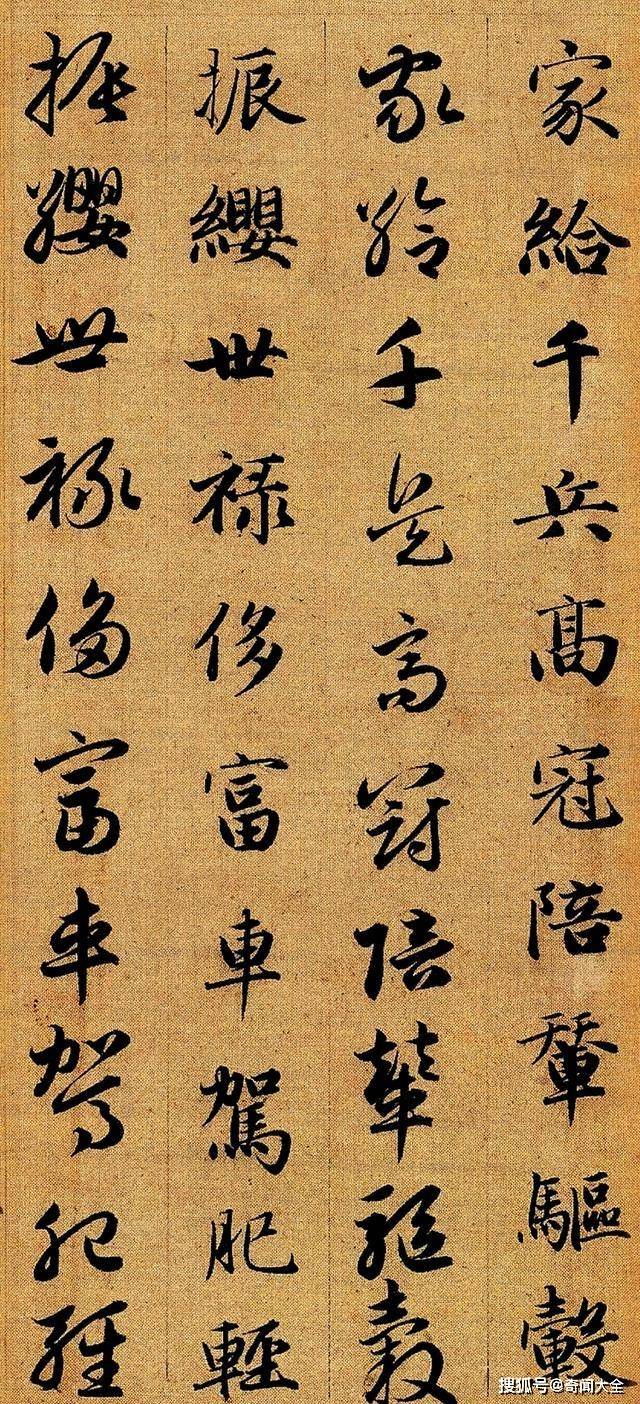 家給千兵高冠陪輦驅轂
家給千兵高冠陪輦驅轂
振纓世祿侈富車駕肥輕
振纓世祿侈富車駕肥輕
搜狐号@奇闻大全